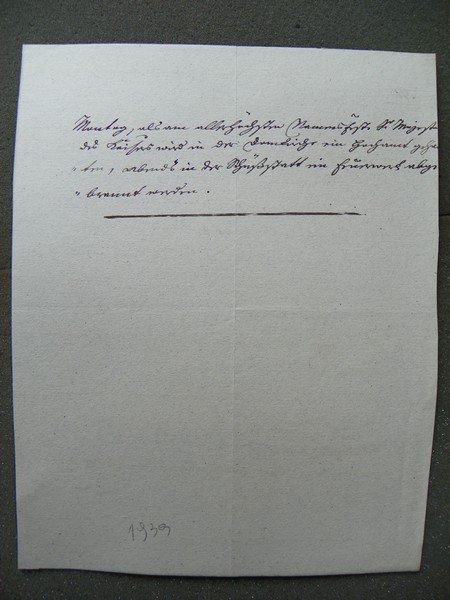 Montag, als am allerhöchsten Namensfeste Sr Majestä
des Kaisers wird in der Domkirche ein Hochamt geha
" ten, abends in der Schießstatt ein Feuerwerk abge
" brannt werden.
1939